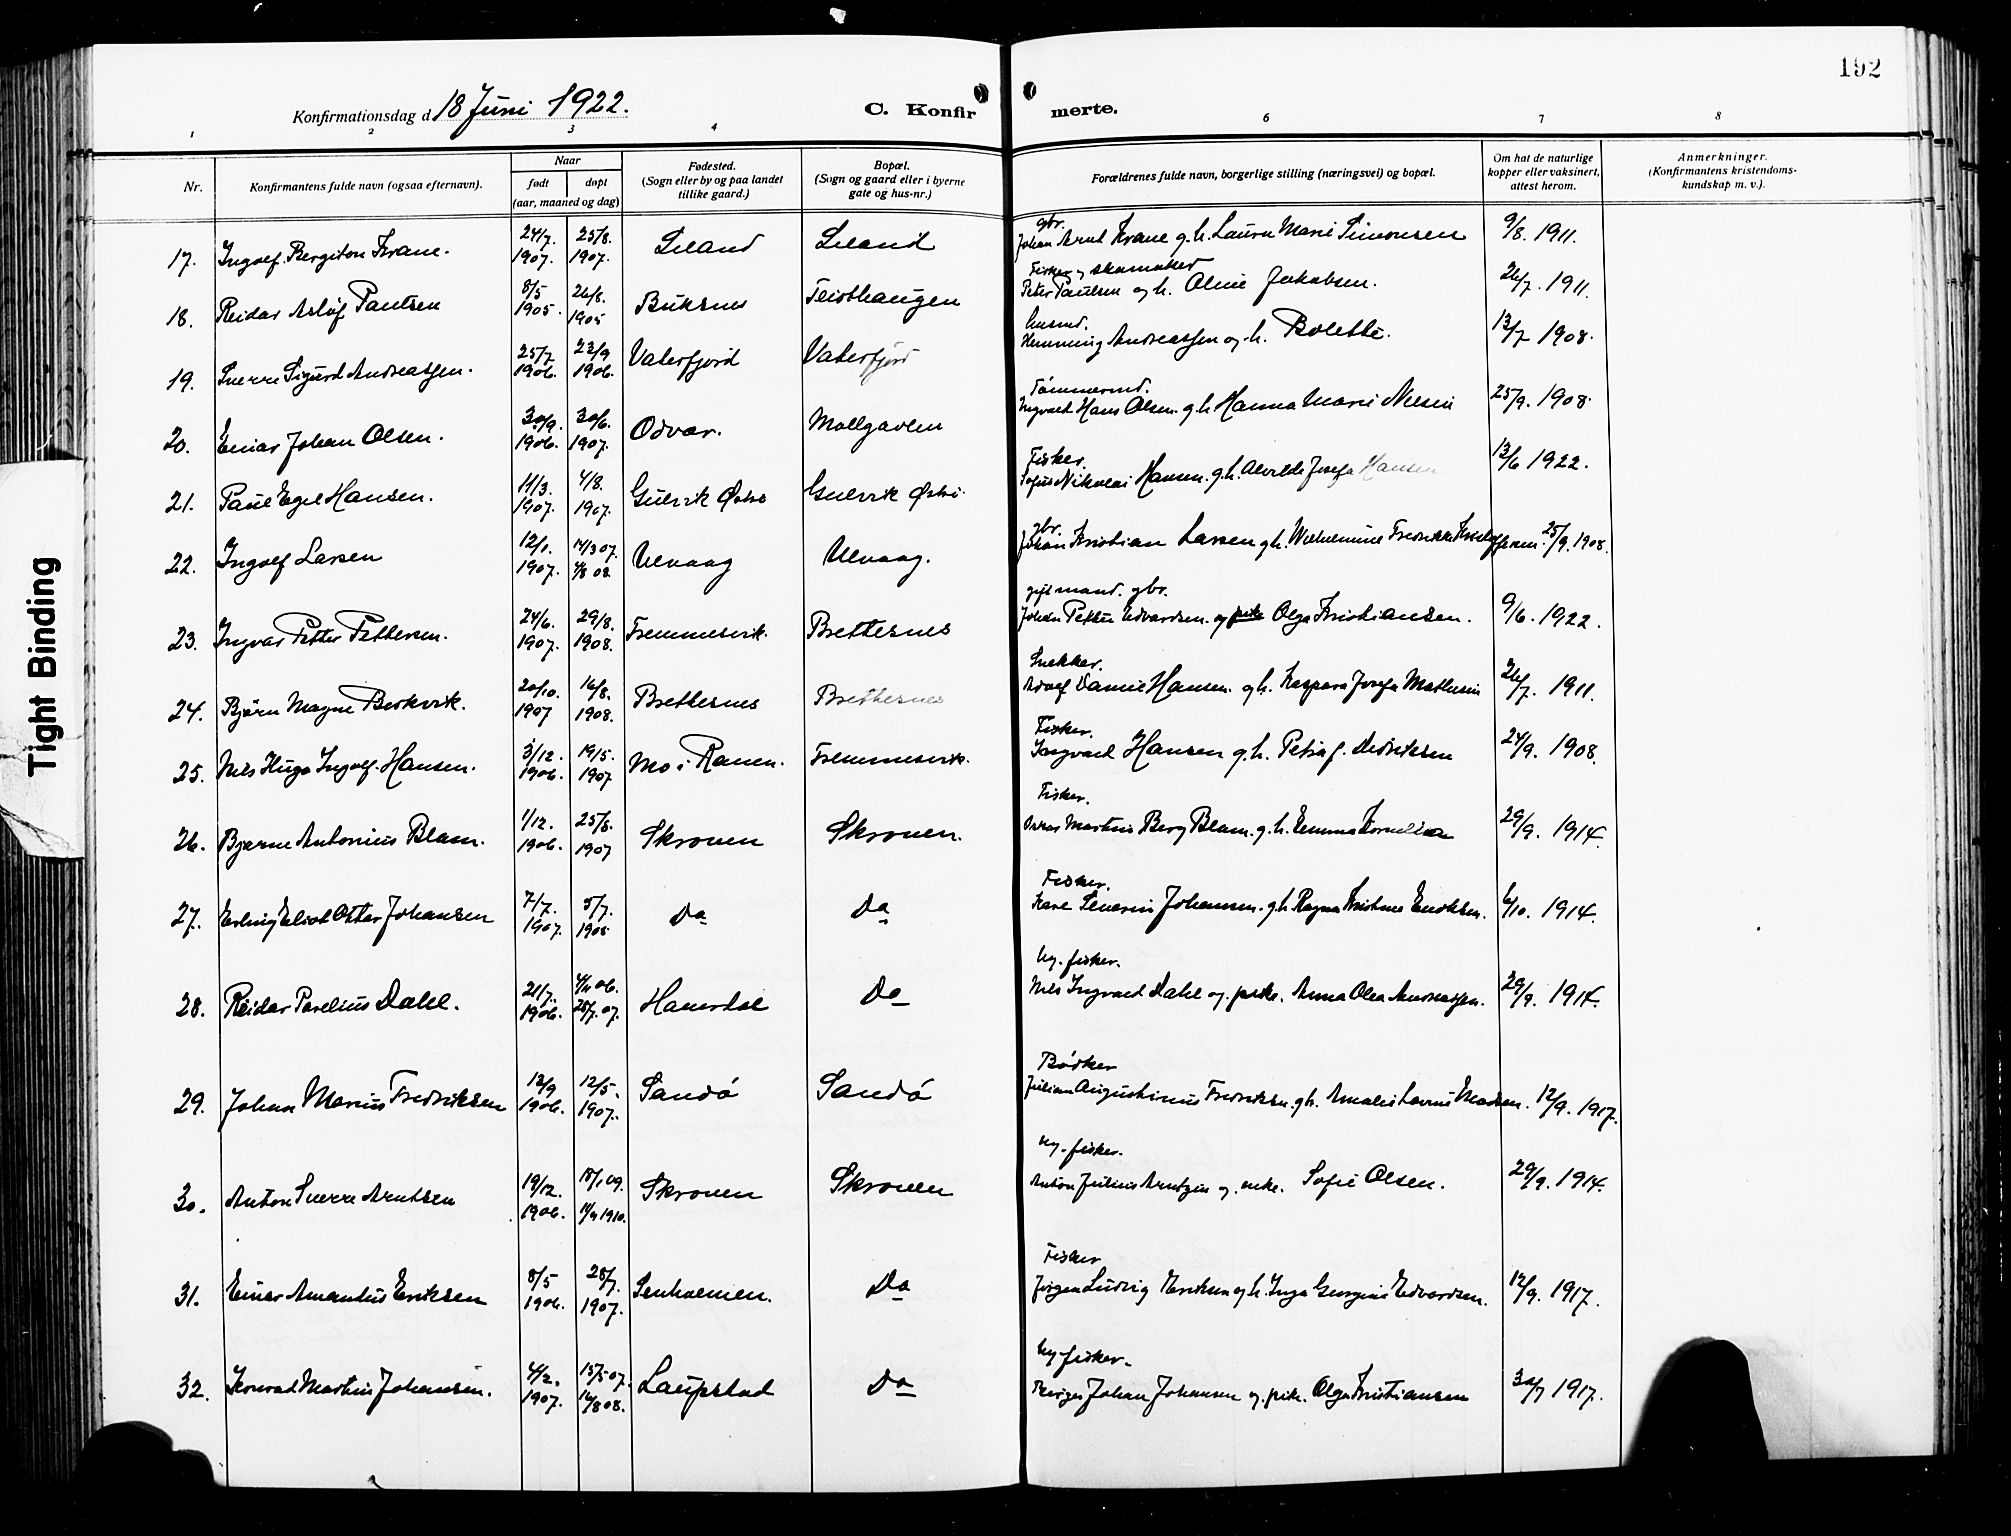 192
Konfirmationsdag d. 18 Juni 1922.
C. Konfirmerte.
1 2 3 4 6 7 8
Nr.
Konfirmantens fulde navn (ogsaa efternavn).
Naar
født
døpt
(aar, maaned og dag)
Fødested.
(Sogn eller by og paa landet
tillike gaard.)
Bopæl.
(Sogn og gaard eller i byerne
gate og hus-nr.)
Forældrenes fulde navn, borgerlige stilling (næringsvei) og bopæl.
Om hat de naturlige
kopper eller vaksinert,
attest herom.
Anmerkninger.
(Konfirmantens kristendoms-
kundskap m. v.).
gbr.
17. Ingolf Bergiton Krane. 24/7. 1907. 25/8. 1907. Johan Arnt Krane g.h. Laura Marie Simonsen 9/8. 1911.
Fisker og skomaker
18. Reidar Aslof 8/5 1905. 26/8. 1905 Buksnes Peter Paulsen og h. Aline Jakobsen. 26/7. 1911.
husmd.
19. Sverre Sigurd Andreassen. 25/7 1906. 23/9 1906. Vaterfjord Vaterfjord Hemming Andreassen og h. Bolette. 13/7 1908.
Tømmermd.
20. Einar Johan Olsen. 30/9. 1906. 30/6. 1907. Odvær. Mollgavlen Ingvald Hans Olsen. g.h. Hanna Marie Nilsen 25/9. 1908.
Fisker.
21. Paul Egil Hansen. 11/3. 1907. 4/8. 1907. Gulvik Østre Gulvik Østre Sofus Nikolai Hansen. g.h. Alvilde Josefa Hansen 13/6 1922.
gbr.
22. Ingolf Larsen 12/1. 1907. 14/3 07. 4/8 08. Ulvaag Ulvaag. Johan Kristian Larsen g.h. Wilhelmine Fredrikke 25/9. 1908.
gift mand. gbr.
23. Ingvar Petter Pettersen. 24/6. 1907. 29/8. 1908. Fremmesvik. Brettesnes Johan Petter Edvardsen. og pike Olga Kristiansen. 9/6. 1922.
Snekker.
24. Bjørn Magne Berkvik. 20/10. 1907 16/8. 1908. Brettesnes Brettesnes Adolf Daniel Hansen. g.h. Kaspara Josefa Mathisen 26/7. 1911.
Fisker.
25. Nils Hugo Ingolf Hansen. 3/12. 1906. 19/5. 1907 Mo i Ranen. Fremmesvik. Ingvald Hansen g.h. Petra f. Didriksen 24/9. 1908.
Fisker.
26. Bjarne Antonius Blam. 1/12. 1906. 25/8. 1907 Skroven Skroven. Oskar Martin Berg Blam. g.h. Emma Kornelia 29/9. 1914.
Fisker.
27. Erling Eliot Otter Johansen 7/7. 1907. 5/7. 1908 Do Do Kare Severin Johansen. g.h. Ragna Kristine Eriksen. 6/10. 1914.
ug. fisker.
28. Reidar Parelius Dahl. 21/7. 1906. 4/11 06. 28/7. 07. Do Nils Ingvald Dahl og. pike. Anna Olea Andreassen. 29/9. 1914.
Bødker
29. Johan Marius Fredriksen 12/9 1906. 12/5. 1907. Sandø Sandø Julian Augustinius Fredriksen. g.h. Amalie Lovise Madsen. 12/9. 1917.
ug. fisker.
30. Anton Sverre Arntsen 19/12. 1906. 18/1 09. 11/9 1910. Skroven Skroven Anton Julius Arntzen og. enke. Sofie Olsen. 29/9. 1914.
Fisker
31. Einar Amandus Eriksen 8/5 1906. 28/7. 1907. Senholmen. Do Jørgen Ludvig Eriksen g.h. Inga Georgine Edvardsen. 12/9. 1917.
ug. fisker.
32. Konrad Martin Johansen. 4/2. 1907. 15/5 07. 16/8 08. Laupstad Do Birger Johan Johansen og. pike. Olga Kristiansen 30/7 1917.
Tight Binding